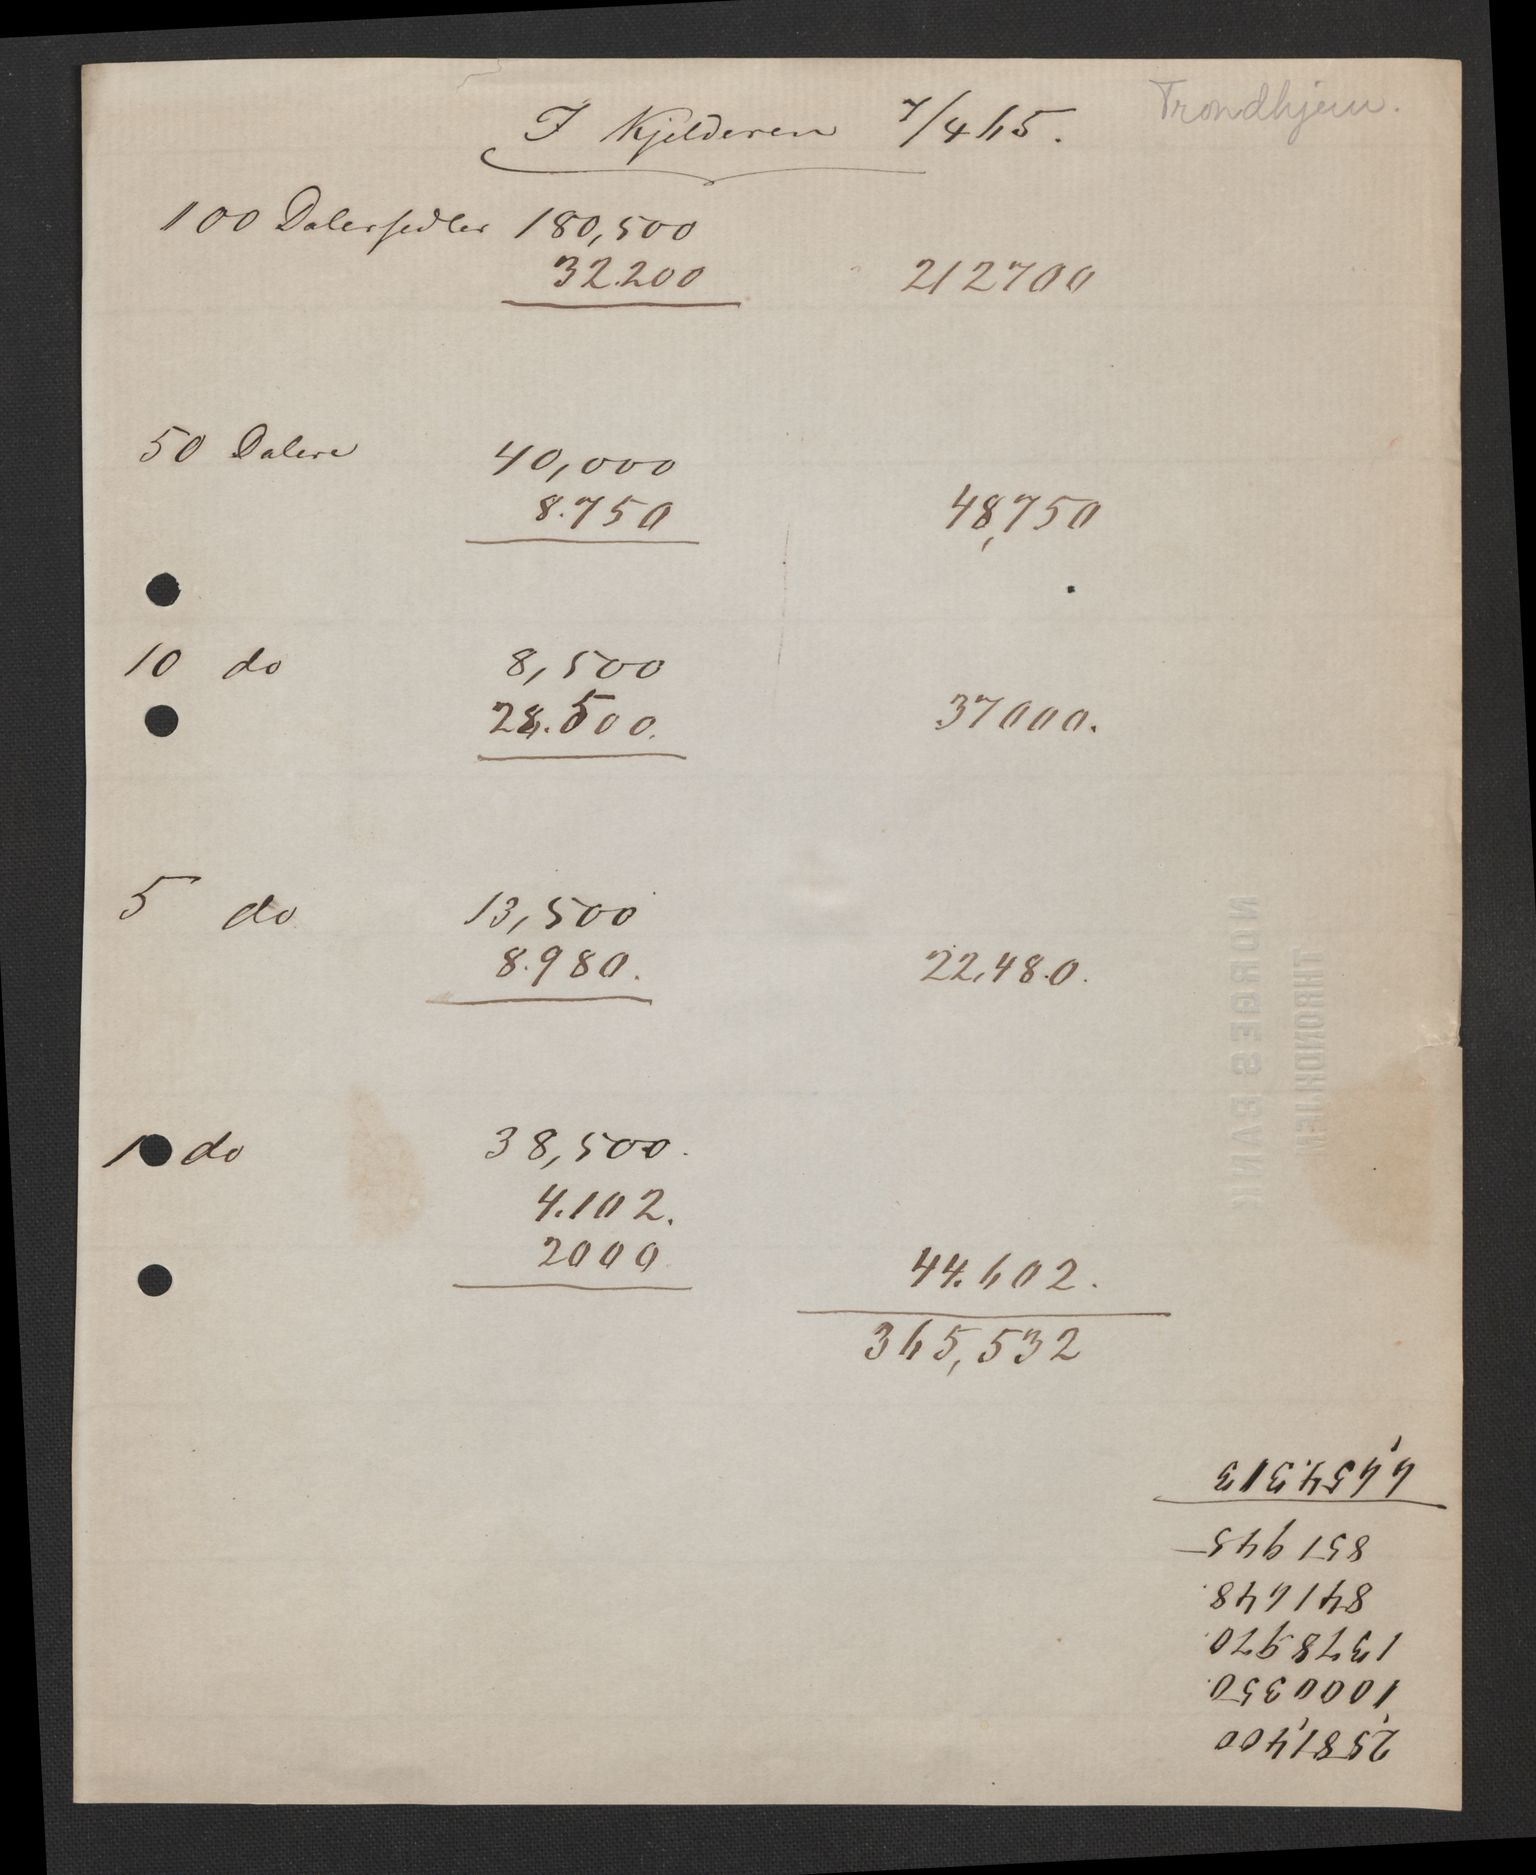 Trondhjem.
I Kjelderen 7/4 65.
100 Dalersedler 180,500
32.200 212700
50 Dalere 40,000
8.750 48,750
10 do 8,500
28.500. 37000.
5 do 13,500
8.980. 22,48.0.
1 do 38,500.
4.102.
2000 44.602.
365,532
NORGES BANK
THRONDHJEM
2,581,400
1,000 350.
1378970.
841648.
851945—
6,654,313